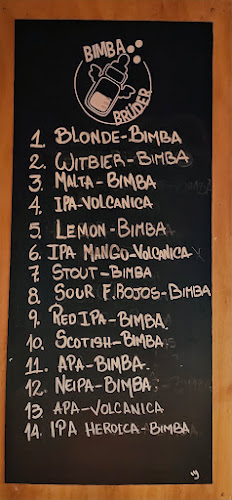 BIMBA
BRÜDER
1. BLONDE-BIMBA
2. WITBIER-BIMBA
3. MALTA-BIMBA
4. IPA-VOLCANICA
5. LEMON-BIMBA
6. IPA MANGO-VOLCANICA
7. STOUT-BIMBA
8. SOUR F.ROJOS-BIMBA
9. RED IPA-BIMBA.
10. SCOTISH-BIMBA
11. APA-BIMBA.
12. NEIPA-BIMBA.
13 APA-VOLCANICA
14. IPA HEROICA-BIMBA